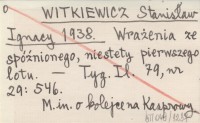 WITKIEWICZ Stanisław
Ignacy 1938. Wrażenia ze
spóźnionego, niestety pierwszego
lotu. — Tyg. Il. 79, nr
29: 546.
M.in. o kolejce na Kasprowy